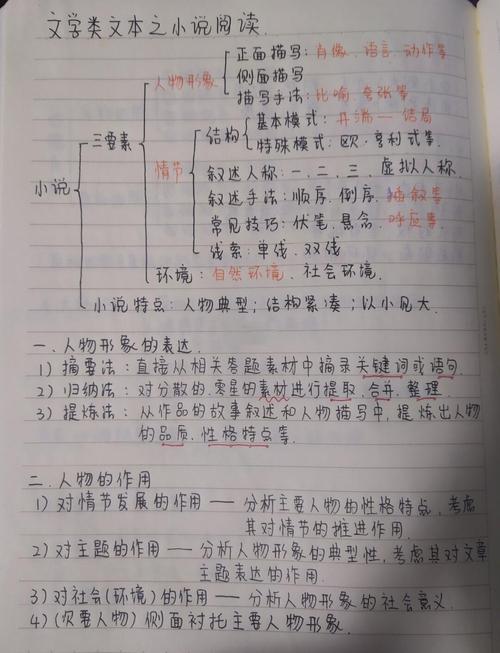 文学类文本之小说阅读.
正面描写：肖像、语言、动作等
人物形象 侧面描写
描写手法：比喻、夸张等
三要素
基本模式：开端—结局
结构
特殊模式：欧·亨利式等.
情节 叙述人称：一、二、三、虚拟人称
小说
叙述手法：顺序、倒序、插叙等
常见技巧：伏笔、悬念、呼应等
线索：单线、双线
环境：自然环境、社会环境.
小说特点：人物典型；结构紧凑；以小见大.
一.人物形象的表达.
1）摘要法：直接从相关答题素材中摘录关键词或语句.
2）归纳法：对分散的、零星的素材进行提取、合并、整理.
3）提炼法：从作品的故事叙述和人物描写中，提炼出人物
的品质、性格特点等.
二.人物的作用
1）对情节发展的作用——分析主要人物的性格特点，考虑
其对情节的推进作用.
2）对主题的作用——分析人物形象的典型性，考虑其对文章
主题表达的作用.
3）对社会（环境）的作用——分析人物形象的社会意义.
4）（次要人物）侧面衬托主要人物形象.